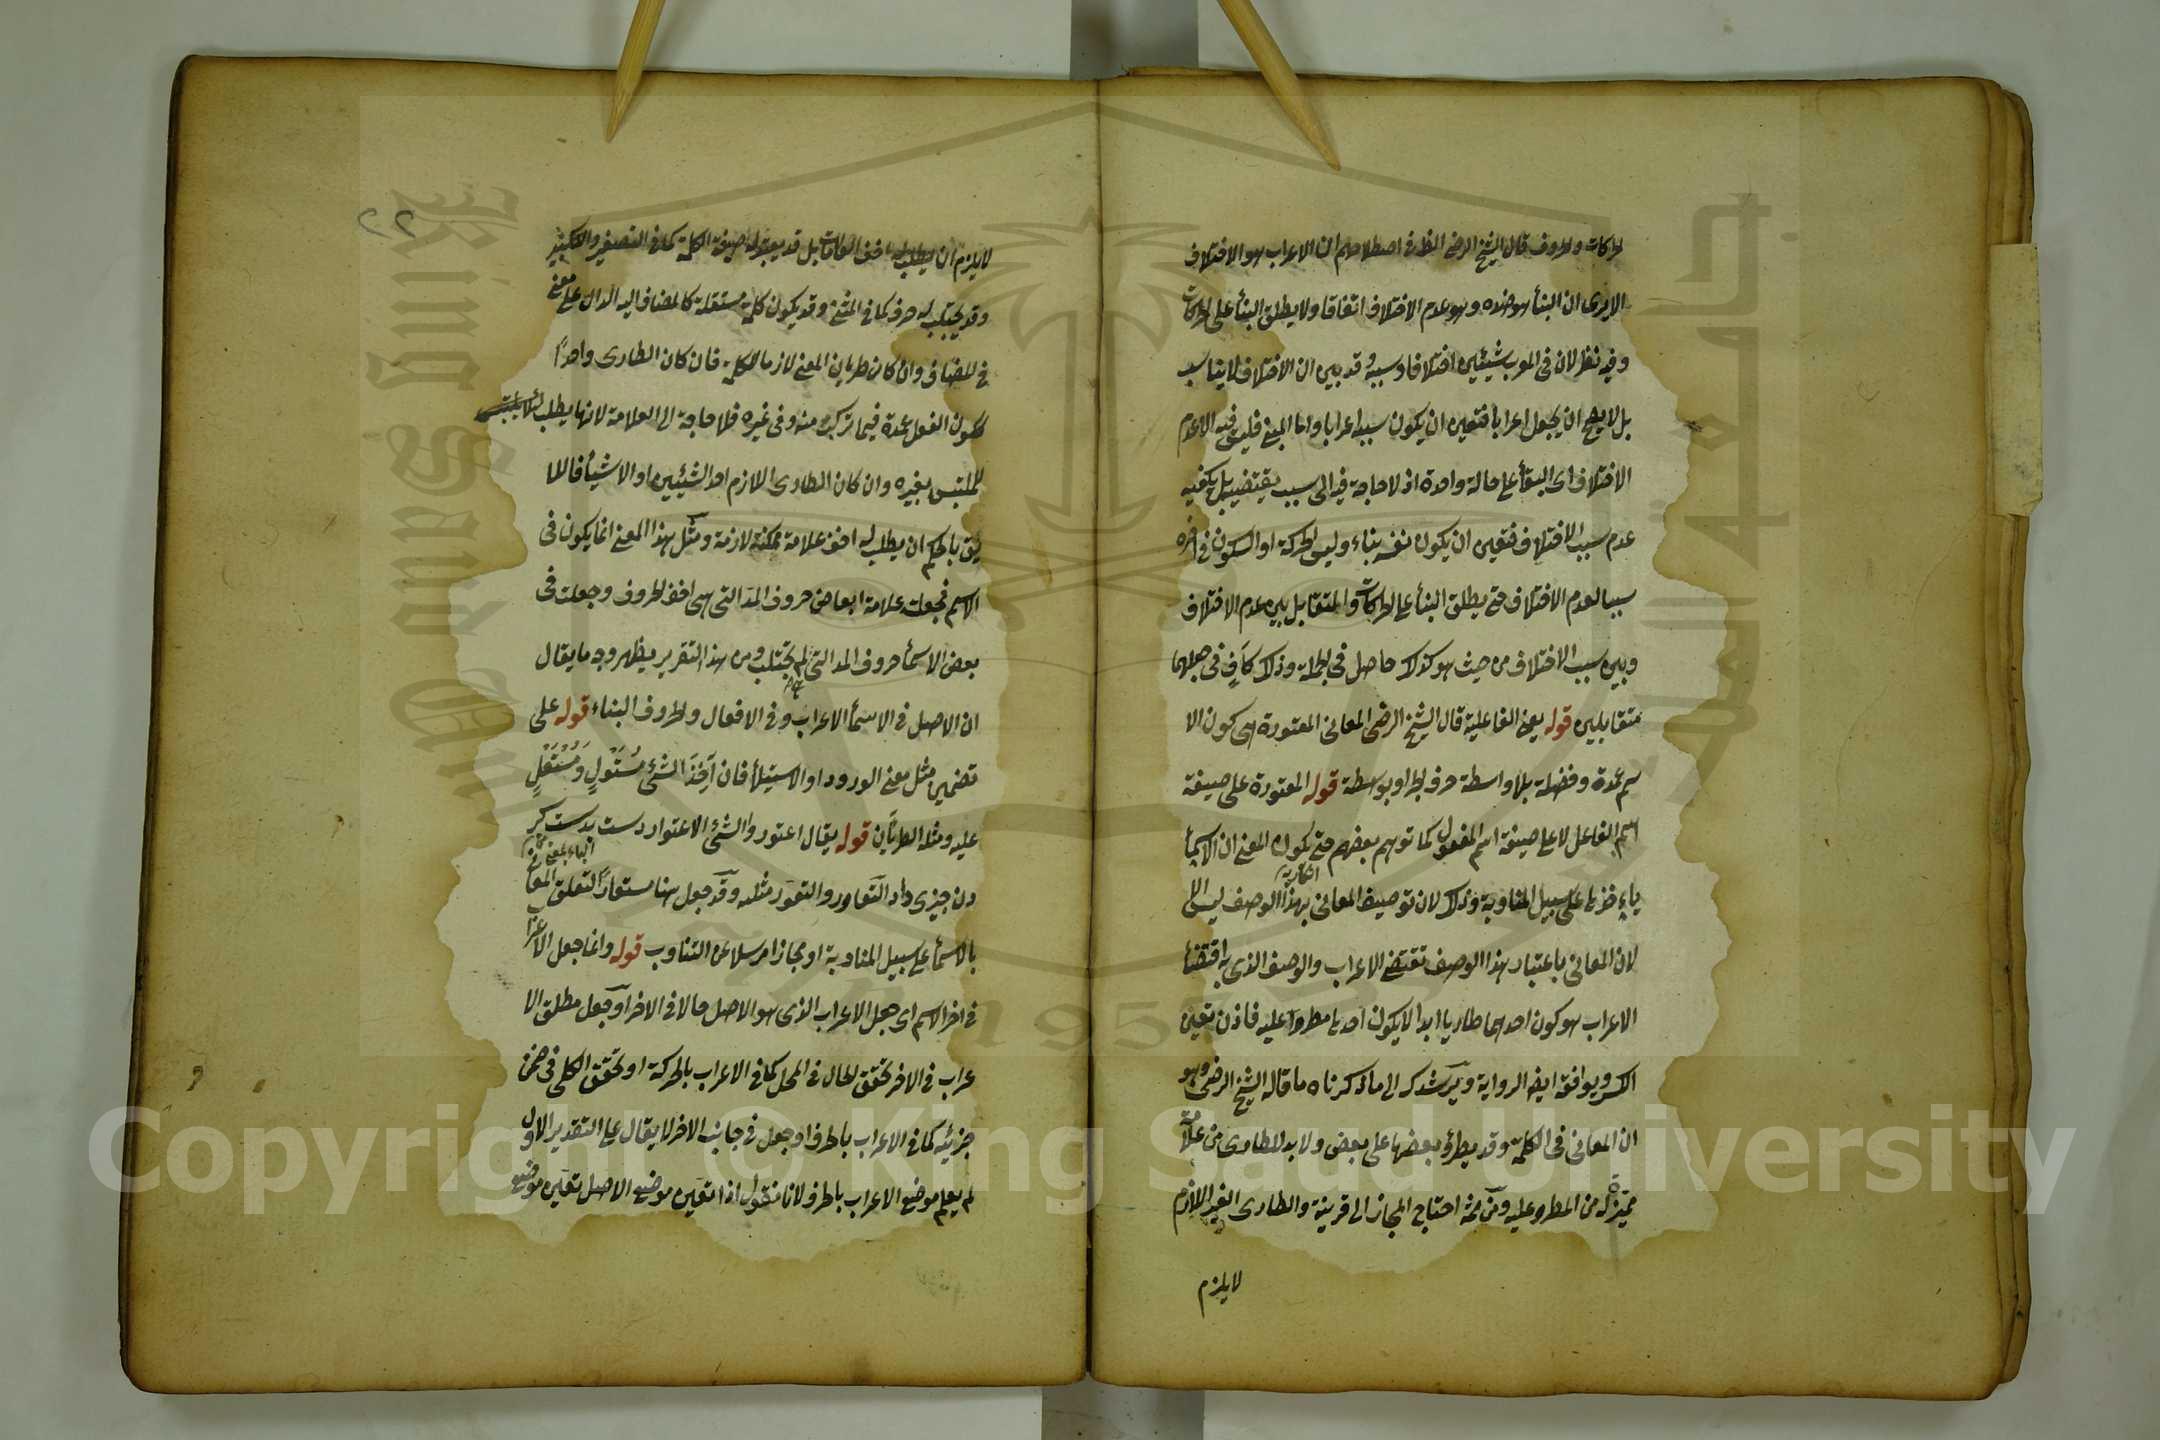 لحركات والحروف قال الشيخ الرضي الظ في اصطلاحهم ان الاعراب هو الاختلاف
الا يرى ان البنأ هو ضده وهو عدم الاختلاف اتفاقا ولا يطلق البنأ على الحركات
وفيه نظر لان في المعرب شيئين اختلافا وسببه وقد بين ان الاختلاف لا يناسب
بل لا يصح ان يجعل اعرابا فتعين ان يكون سببه اعرابا واما المبني فليس فيه الا عدم
الاختلاف اى البقأ على حالة واحدة اذ لا حاجة فيه الى سبب يقتضيه بل يكفيه
عدم سبب الاختلاف فتعين ان يكون نفسه بناء وليس الحركة او السكون في اخره
سببا لعدم الاختلاف حتى يطلق البنأ على الحركات والمتقابل بين عدم الاختلاف
وبين سبب الاختلاف من حيث هو كذلك حاصل في الجملة وذلك كافٍ في جعلهما
متقابلين قوله يعنى الفاعلية قال الشيخ الرضى المعانى المعتورة هى كون الا
سم عمدة وفضلة بلا واسطة حرف الجر او بوسطة قوله المعتورة على صيغة
اسم الفاعل لا على صيغة اسم المفعول كما توهم بعضهم حتى يكون المعنى ان الاسمأ
على سبيل المناوبة وذلك لان توصيف المعانى بهذا الوصف ليس الا
لان المعانى باعتبار هذا الوصف تقتضى الاعراب والوصف الذى به اقتضأ
الاعراب هو كون احدهما طاريا ابدا لا يكون احدها مطروا عليه فاذن تعين
الكسر ويوافقه ايضا الرواية ويرشدك الى ما ذكرناه ما قاله الشيخ الرضى وهو
ان المعانى في الكلمة وقد يطرؤ بعضها على بعض ولا بد للطارى من علامة
مميزة له من المطرو عليه ومن ثمه احتاج المجاز الى قرينة والطارى الغير اللازم
لا يلزم
٢٢
لا يلزم ان يطلب له اخف العلامات بل قد يعتبر له صيغة الكلمة كما في التصغير والتكسير
وقد يجتلب له حرف كما في المثنى وقد يكون كلمة مستقلة كالمضاف اليه الدال على معنى
في المضاف وان كان طريان المعنى لازما للكلمة فان كان الطارى واحدًا
ككون الفعل عمدة فيما تركب منه وفى غيره فلا حاجة الى العلامة لانها يطلب
للملتبس بغيره وان كان الطارى اللازم احد الشيئين او الاشيأ فاللا
يق بالحكيم ان يطلب له اخف علامة ممكنة لازمة ومثل هذا المعنى انما يكون في
الاسم فجعلت علامة ابعاض حروف المد التى هى اخف الحروف وجعلت في
بعض الاسمأ حروف المد التى لم تجتلب ومن هذا التقرير يظهر وجه ما يقال
ان الاصل في الاسمأ الاعراب وفى الافعال والحروف البناء قوله على
تضمين مثل معنى الورود او الاستيلأ فان آخِذَ الشئ مُسْتَوْلٍ وَمُسْتَعْلٍ
عليه ومثله الطريان قوله يقال اعتوروا الشئ الاعتوار دست بدست
دن چيزى داد التعاور والتعور مثله وقد جعل هنا مستعارًا لتعلق المعانى
بالاسمأ على سبيل المناوبة او مجازا مرسلا عن التناوب قوله وانما جعل الاعرا
في اخر الاسم اى جعل الاعراب الذى هو الاصل حالا في الاخر او جعل مطلق الا
عراب في الاخر تحقق الحال في المحل كما في الاعراب بالحركة او تحقق الكلى في ضمن
جزئيه كما في الاعراب بالحرف او جعل في جانب الاخر لا يقال على التقدير الاول
لم يعلم موضع الاعراب بالحرف لانا نقول اذا تعين موضع الاصل تعين موضع
Copyright © King Saud University